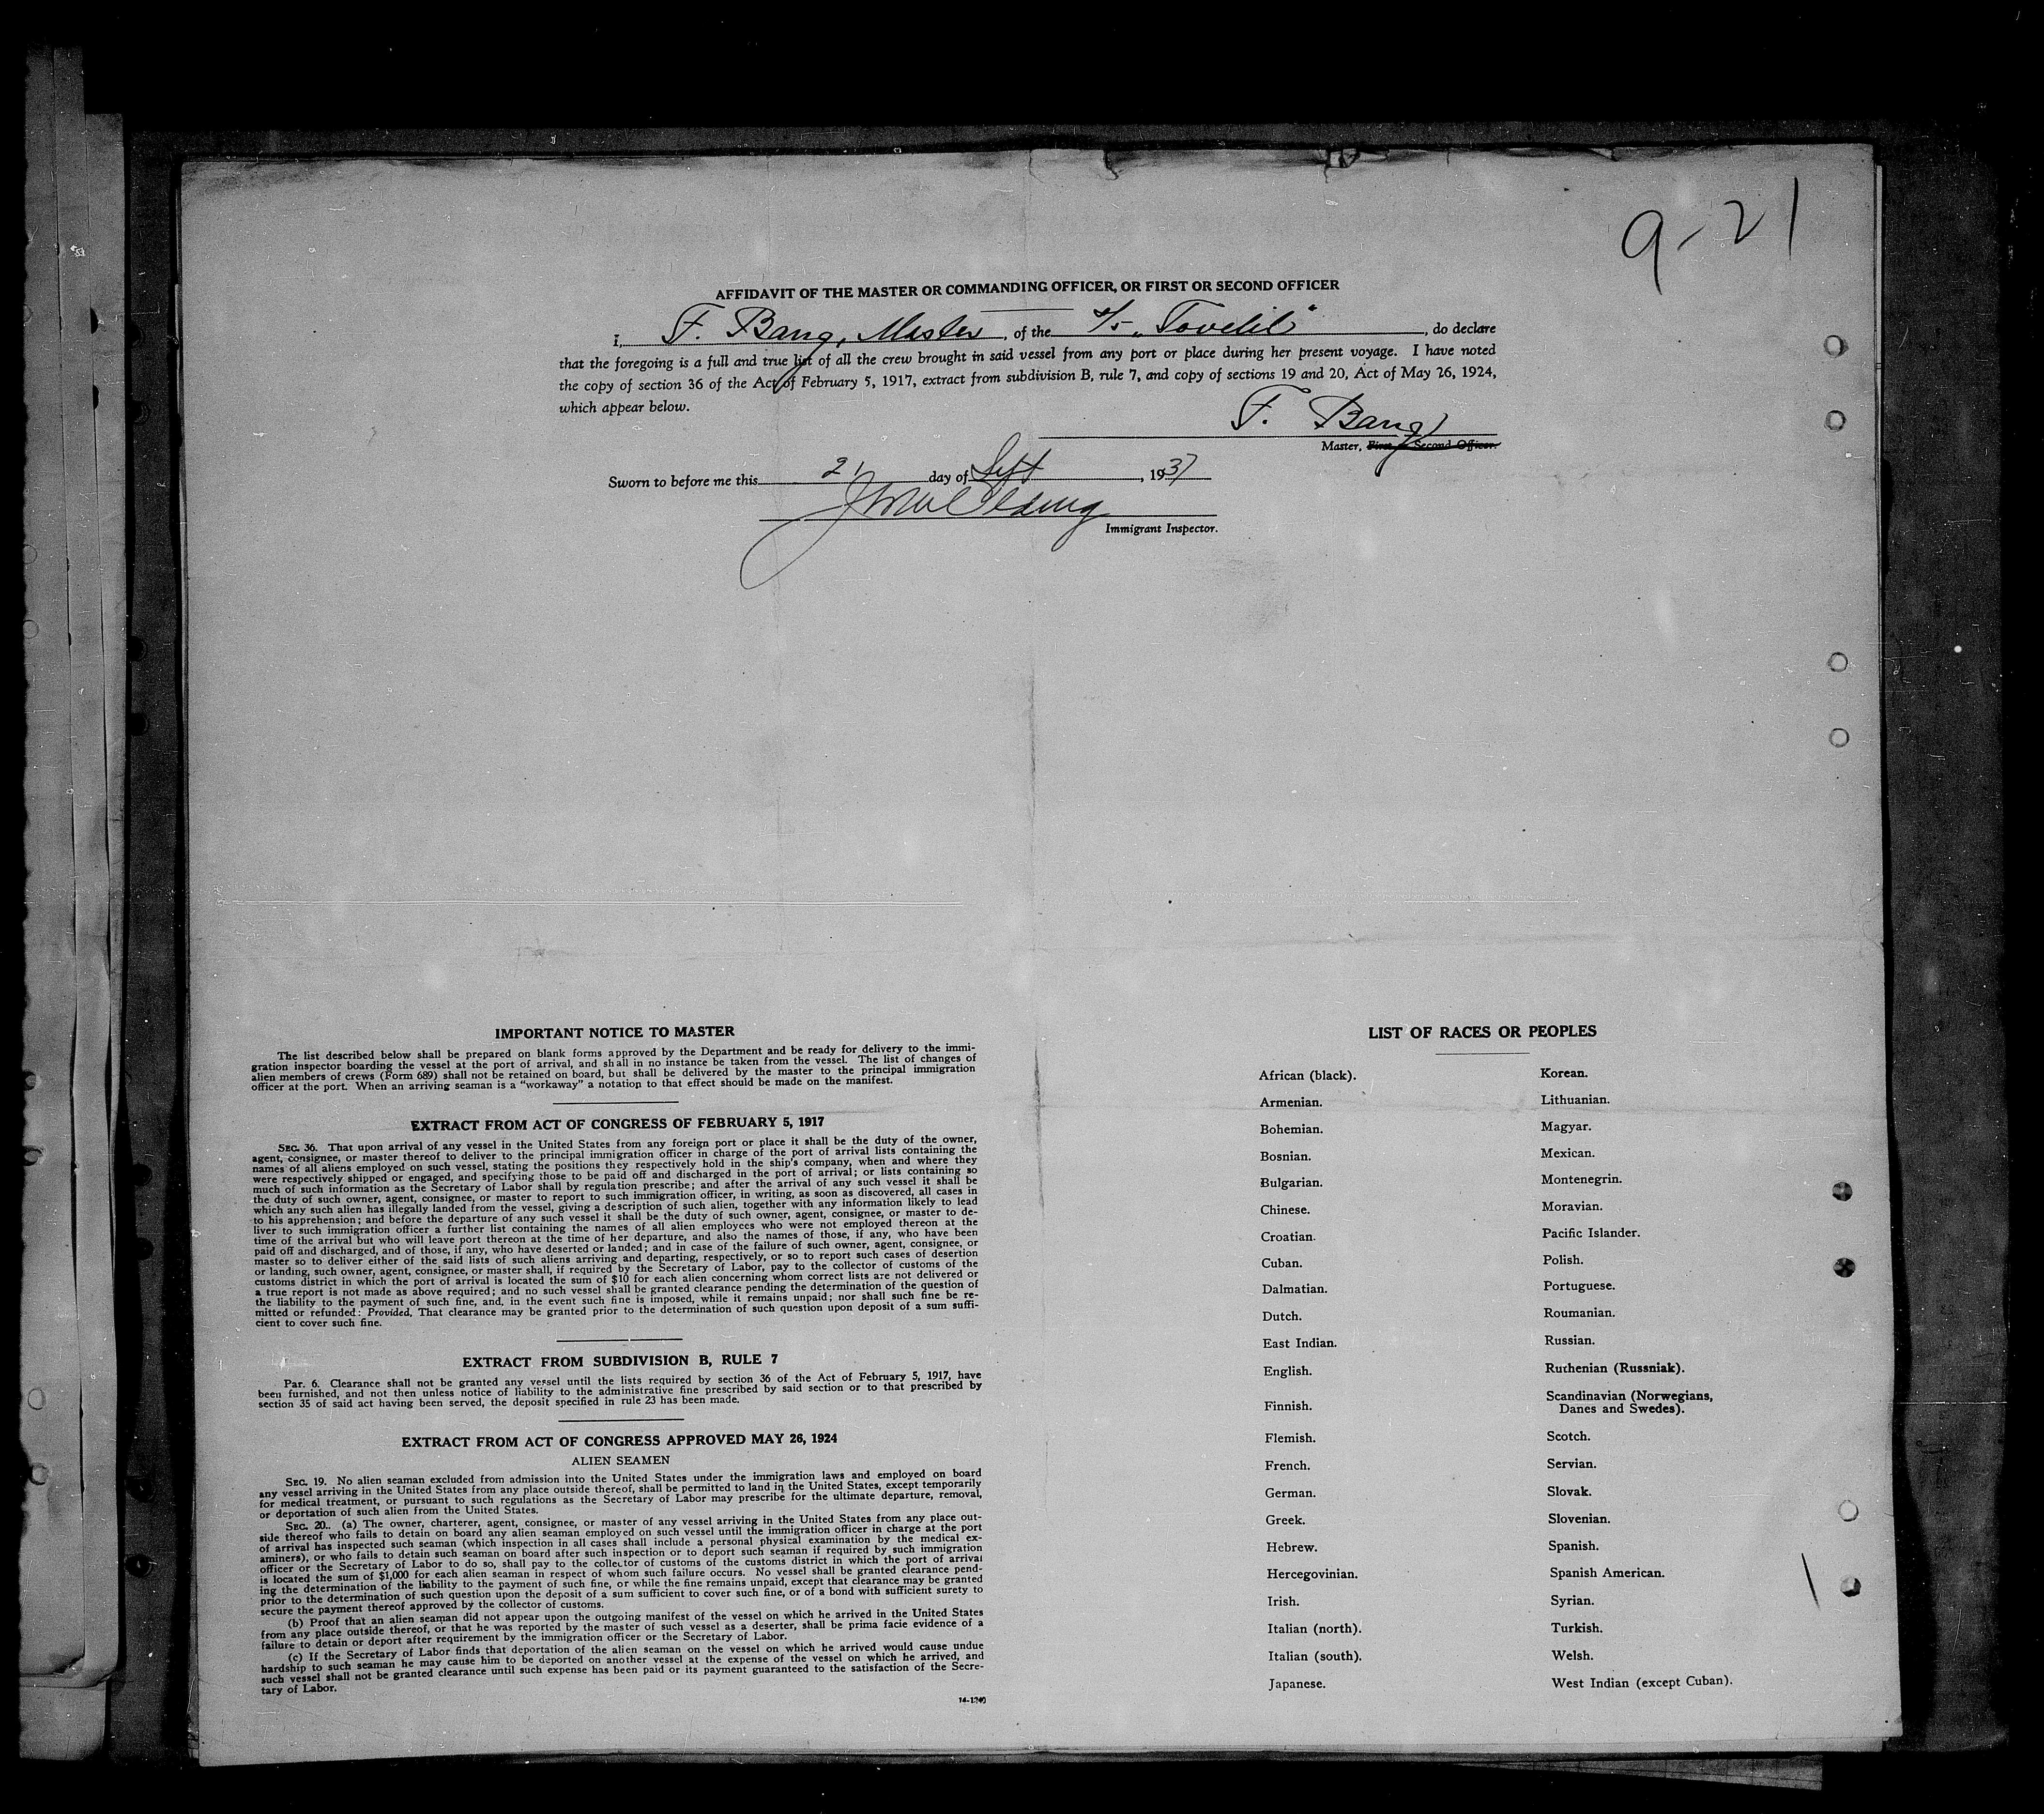 9-21
AFFIDAVIT OF THE MASTER OR COMMANDING OFFICER, OR FIRST OR SECOND OFFICER
I, F. Bang, Master, of the S/S „Tovelil", do declare
that the foregoing is a full and true list of all the crew brought in said vessel from any port or place during her present voyage. I have noted
the copy of section 36 of the Act of February 5, 1917, extract from subdivision B, rule 7, and copy of sections 19 and 20, Act of May 26, 1924,
which appear below.
F. Bang
Master, First or Second Officer.
Sworn to before me this 21 day of Sept, 1937
Immigrant Inspector.
IMPORTANT NOTICE TO MASTER
The list described below shall be prepared on blank forms approved by the Department and be ready for delivery to the immi-
gration inspector boarding the vessel at the port of arrival, and shall in no instance be taken from the vessel. The list of changes of
alien members of crews (Form 689) shall not be retained on board, but shall be delivered by the master to the principal immigration
officer at the port. When an arriving seaman is a "workaway" a notation to that effect should be made on the manifest.
EXTRACT FROM ACT OF CONGRESS OF FEBRUARY 5, 1917
SEC. 36. That upon arrival of any vessel in the United States from any foreign port or place it shall be the duty of the owner,
agent, consignee, or master thereof to deliver to the principal immigration officer in charge of the port of arrival lists containing the
names of all aliens employed on such vessel, stating the positions they respectively hold in the ship's company, when and where they
were respectively shipped or engaged, and specifying those to be paid off and discharged in the port of arrival; or lists containing so
much of such information as the Secretary of Labor shall by regulation prescribe; and after the arrival of any such vessel it shall be
the duty of such owner, agent, consignee, or master to report to such immigration officer, in writing, as soon as discovered, all cases in
which any such alien has illegally landed from the vessel, giving a description of such alien, together with any information likely to lead
to his apprehension; and before the departure of any such vessel it shall be the duty of such owner, agent, consignee, or master to de-
liver to such immigration officer a further list containing the names of all alien employees who were not employed thereon at the
time of the arrival but who will leave port thereon at the time of her departure, and also the names of those, if any, who have been
paid off and discharged, and of those, if any, who have deserted or landed; and in case of the failure of such owner, agent, consignee, or
master so to deliver either of the said lists of such aliens arriving and departing, respectively, or so to report such cases of desertion
or landing, such owner, agent, consignee, or master shall, if required by the Secretary of Labor, pay to the collector of customs of the
customs district in which the port of arrival is located the sum of $10 for each alien concerning whom correct lists are not delivered or
a true report is not made as above required; and no such vessel shall be granted clearance pending the determination of the question of
the liability to the payment of such fine, and, in the event such fine is imposed, while it remains unpaid; nor shall such fine be re-
mitted or refunded: Provided, That clearance may be granted prior to the determination of such question upon deposit of a sum suffi-
cient to cover such fine.
EXTRACT FROM SUBDIVISION B, RULE 7
Par. 6. Clearance shall not be granted any vessel until the lists required by section 36 of the Act of February 5, 1917, have
been furnished, and not then unless notice of liability to the administrative fine prescribed by said section or to that prescribed by
section 35 of said act having been served, the deposit specified in rule 23 has been made.
EXTRACT FROM ACT OF CONGRESS APPROVED MAY 26, 1924
ALIEN SEAMEN
SEC. 19. No alien seaman excluded from admission into the United States under the immigration laws and employed on board
any vessel arriving in the United States from any place outside thereof, shall be permitted to land in the United States, except temporarily
for medical treatment, or pursuant to such regulations as the Secretary of Labor may prescribe for the ultimate departure, removal,
or deportation of such alien from the United States.
SEC. 20. (a) The owner, charterer, agent, consignee, or master of any vessel arriving in the United States from any place out-
side thereof who fails to detain on board any alien seaman employed on such vessel until the immigration officer in charge at the port
of arrival has inspected such seaman (which inspection in all cases shall include a personal physical examination by the medical ex-
aminers), or who fails to detain such seaman on board after such inspection or to deport such seaman if required by such immigration
officer or the Secretary of Labor to do so, shall pay to the collector of customs of the customs district in which the port of arrival
is located the sum of $1,000 for each alien seaman in respect of whom such failure occurs. No vessel shall be granted clearance pend-
ing the determination of the liability to the payment of such fine, or while the fine remains unpaid, except that clearance may be granted
prior to the determination of such question upon the deposit of a sum sufficient to cover such fine, or of a bond with sufficient surety to
secure the payment thereof approved by the collector of customs.
(b) Proof that an alien seaman did not appear upon the outgoing manifest of the vessel on which he arrived in the United States
from any place outside thereof, or that he was reported by the master of such vessel as a deserter, shall be prima facie evidence of a
failure to detain or deport after requirement by the immigration officer or the Secretary of Labor.
(c) If the Secretary of Labor finds that deportation of the alien seaman on the vessel on which he arrived would cause undue
hardship to such seaman he may cause him to be deported on another vessel at the expense of the vessel on which he arrived, and
such vessel shall not be granted clearance until such expense has been paid or its payment guaranteed to the satisfaction of the Secre-
tary of Labor.
14-1240
LIST OF RACES OR PEOPLES
African (black).
Armenian.
Bohemian.
Bosnian.
Bulgarian.
Chinese.
Croatian.
Cuban.
Dalmatian.
Dutch.
East Indian.
English.
Finnish.
Flemish.
French.
German.
Greek.
Hebrew.
Hercegovinian.
Irish.
Italian (north).
Italian (south).
Japanese.
Korean.
Lithuanian.
Magyar.
Mexican.
Montenegrin.
Moravian.
Pacific Islander.
Polish.
Portuguese.
Roumanian.
Russian.
Ruthenian (Russniak).
Scandinavian (Norwegians,
Danes and Swedes).
Scotch.
Servian.
Slovak.
Slovenian.
Spanish.
Spanish American.
Syrian.
Turkish.
Welsh.
West Indian (except Cuban).